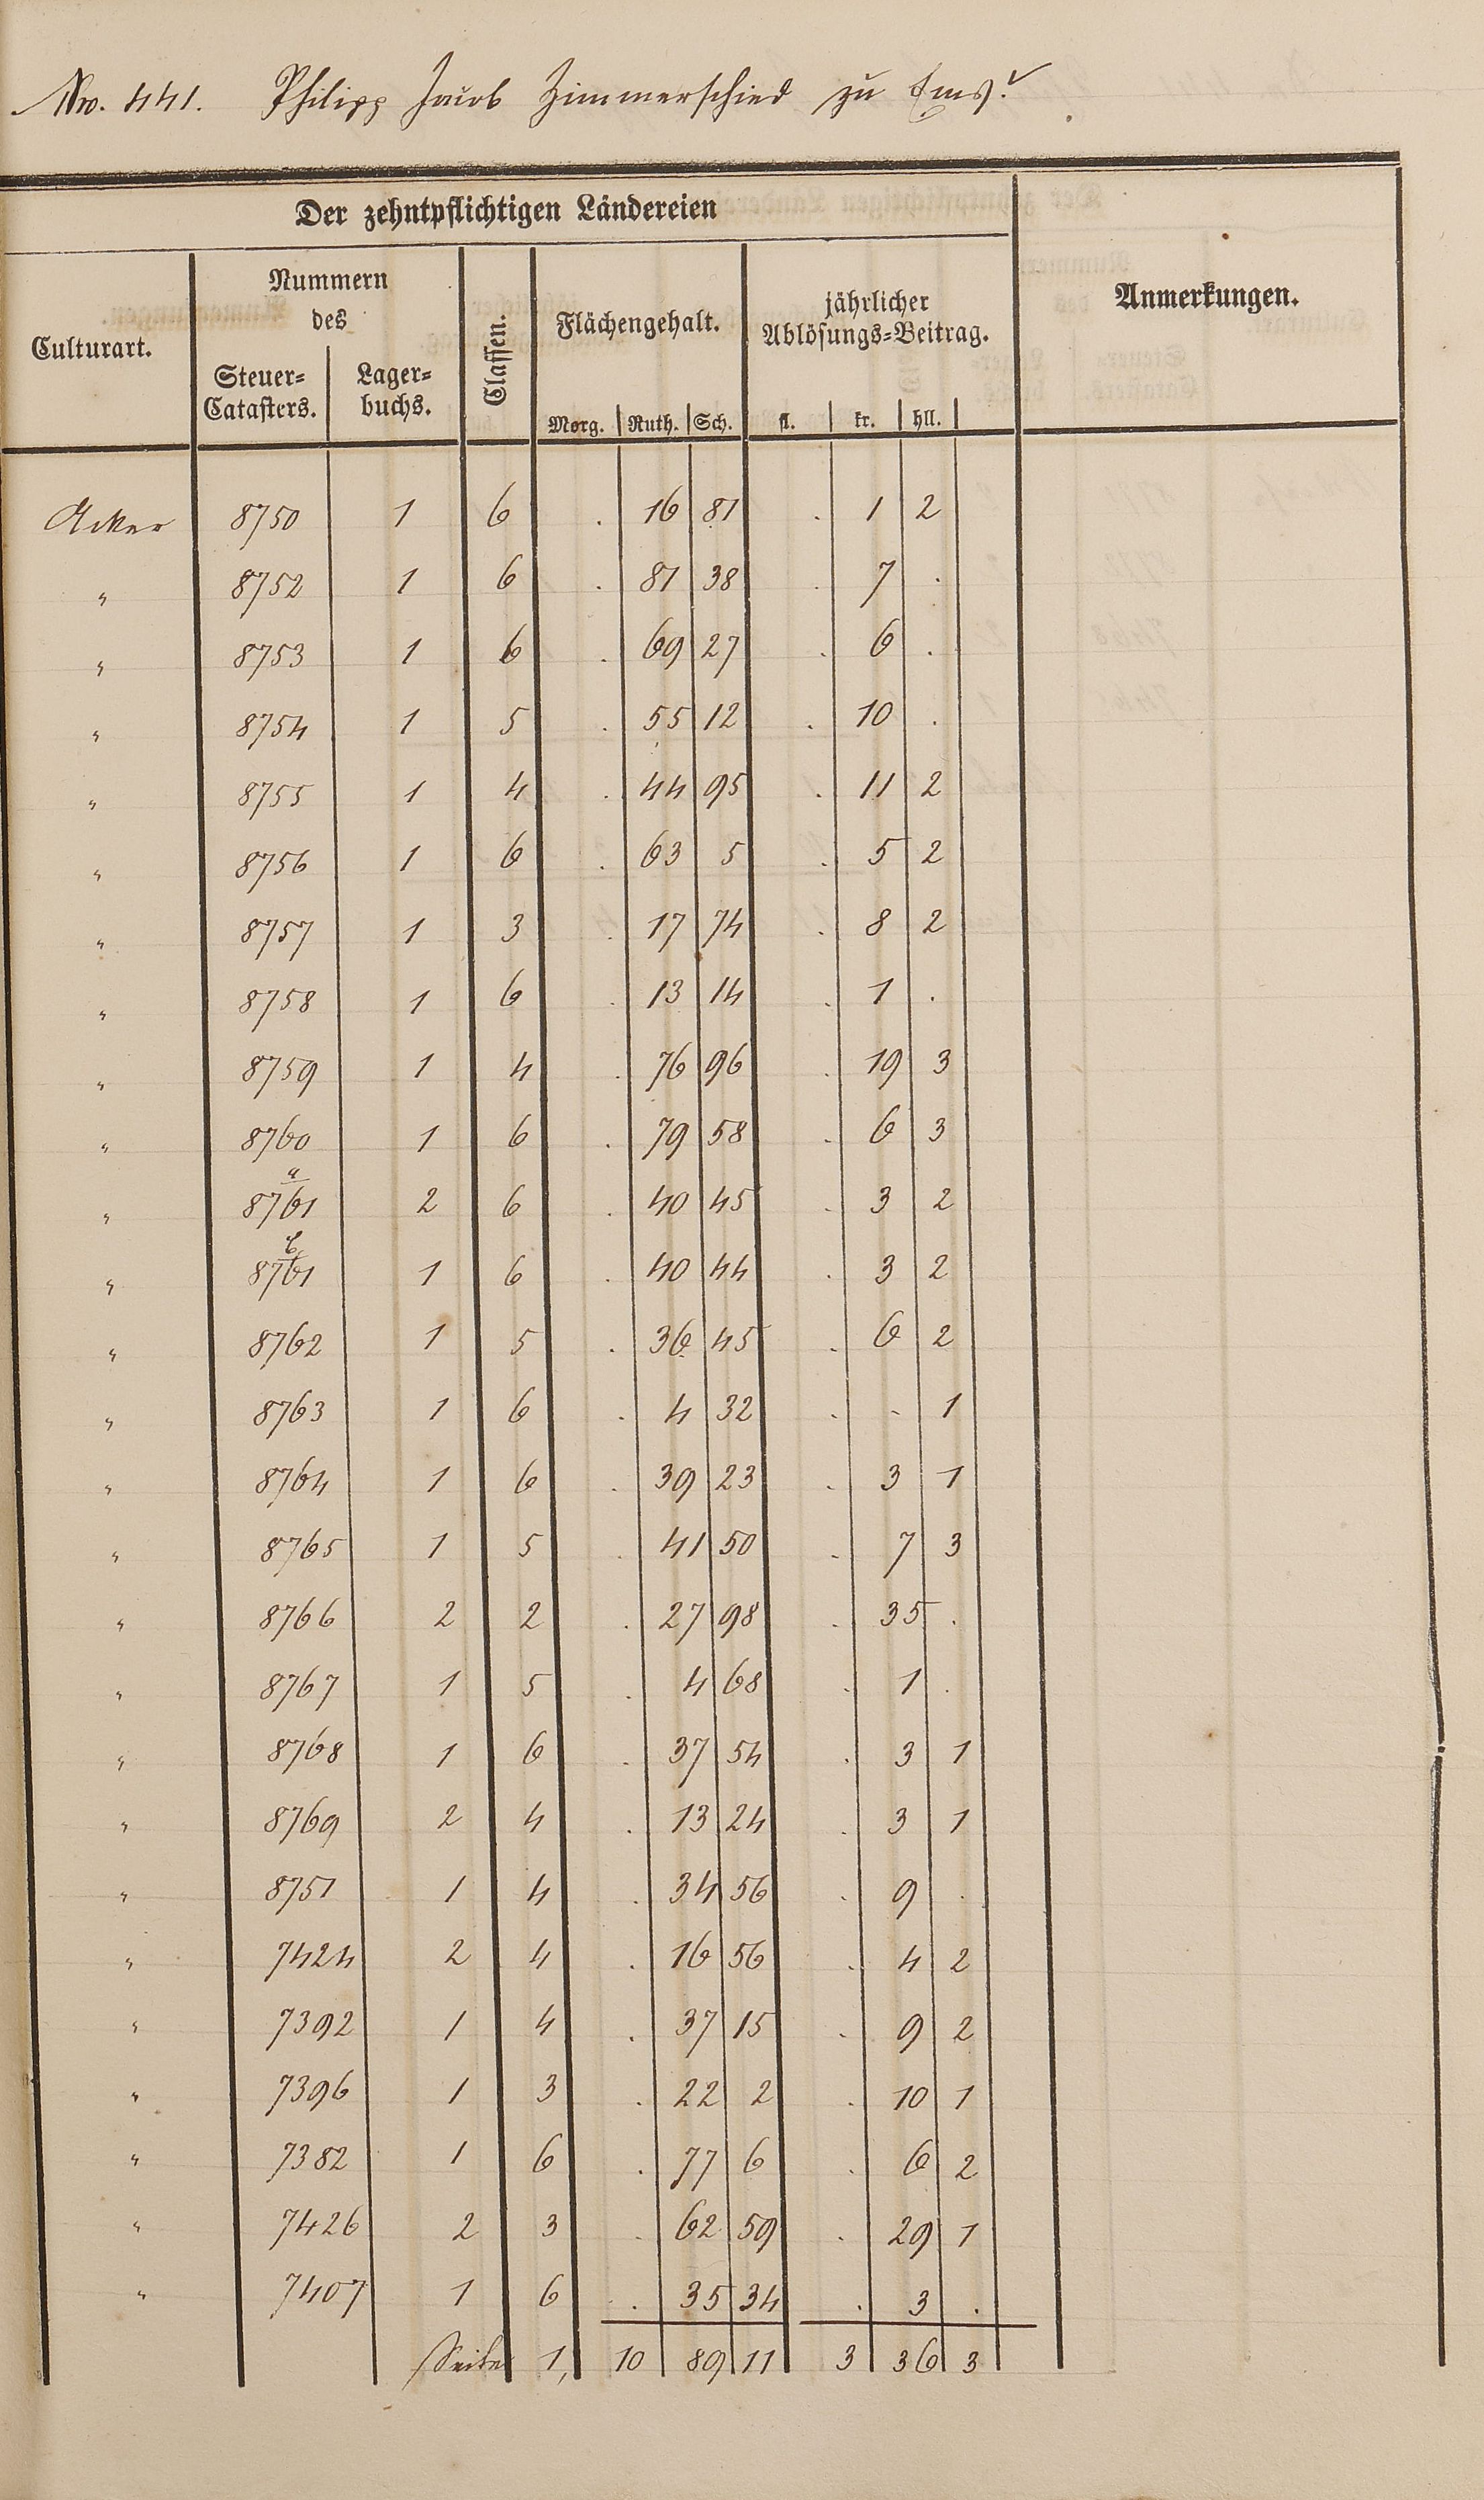 Nro. 441. Philipp Jacob Zimmerschied zu Ems.
Der zehntpflichtigen Ländereien
Culturart. Nummern des Steuer-Catasters. Lager-buchs. Classen. Flächengehalt. jährlicher Ablösungs-Beitrag. Anmerkungen.
Morg. Ruth. Sch. fl. kr. hll.
Acker 8750 1 6 . 16 81 . 1 2
" 8752 1 6 . 81 38 . 7 .
" 8753 1 6 . 69 27 . 6 .
" 8754 1 5 . 55 12 . 10 .
" 8755 1 4 . 44 95 . 11 2
" 8756 1 6 . 63 5 . 5 2
" 8757 1 3 . 17 74 . 8 2
" 8758 1 6 . 13 14 . 1 .
" 8759 1 4 . 76 96 . 19 3
" 8760 1 6 . 79 58 . 6 3
" 8761 a 2 6 . 40 45 . 3 2
" 8761 b 1 6 . 40 44 . 3 2
" 8762 1 5 . 36 45 . 6 2
" 8763 1 6 . 4 32 . . 1
" 8764 1 6 . 39 23 . 3 1
" 8765 1 5 . 41 50 . 7 3
" 8766 2 2 . 27 98 . 35 .
" 8767 1 5 . 4 68 . 1 .
" 8768 1 6 . 37 54 . 3 1
" 8769 2 4 . 13 24 . 3 1
" 8751 1 4 . 34 56 . 9 .
" 7424 2 4 . 16 56 . 4 2
" 7392 1 4 . 37 15 . 9 2
" 7396 1 3 . 22 2 . 10 1
" 7382 1 6 . 77 6 . 6 2
" 7426 2 3 . 62 59 . 29 1
" 7407 1 6 . 35 34 . 3 .
Seite 1, 10 89 11 3 36 3